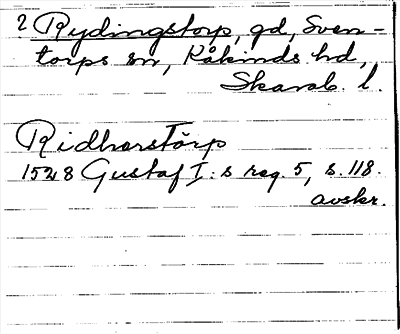 2 Rydingstorp, gd, Sven-
torps sn, Kåkinds hd,
Skarab. l.
Ridharstorp
1528 Gustaf I:s reg. 5, s. 118.
avskr.